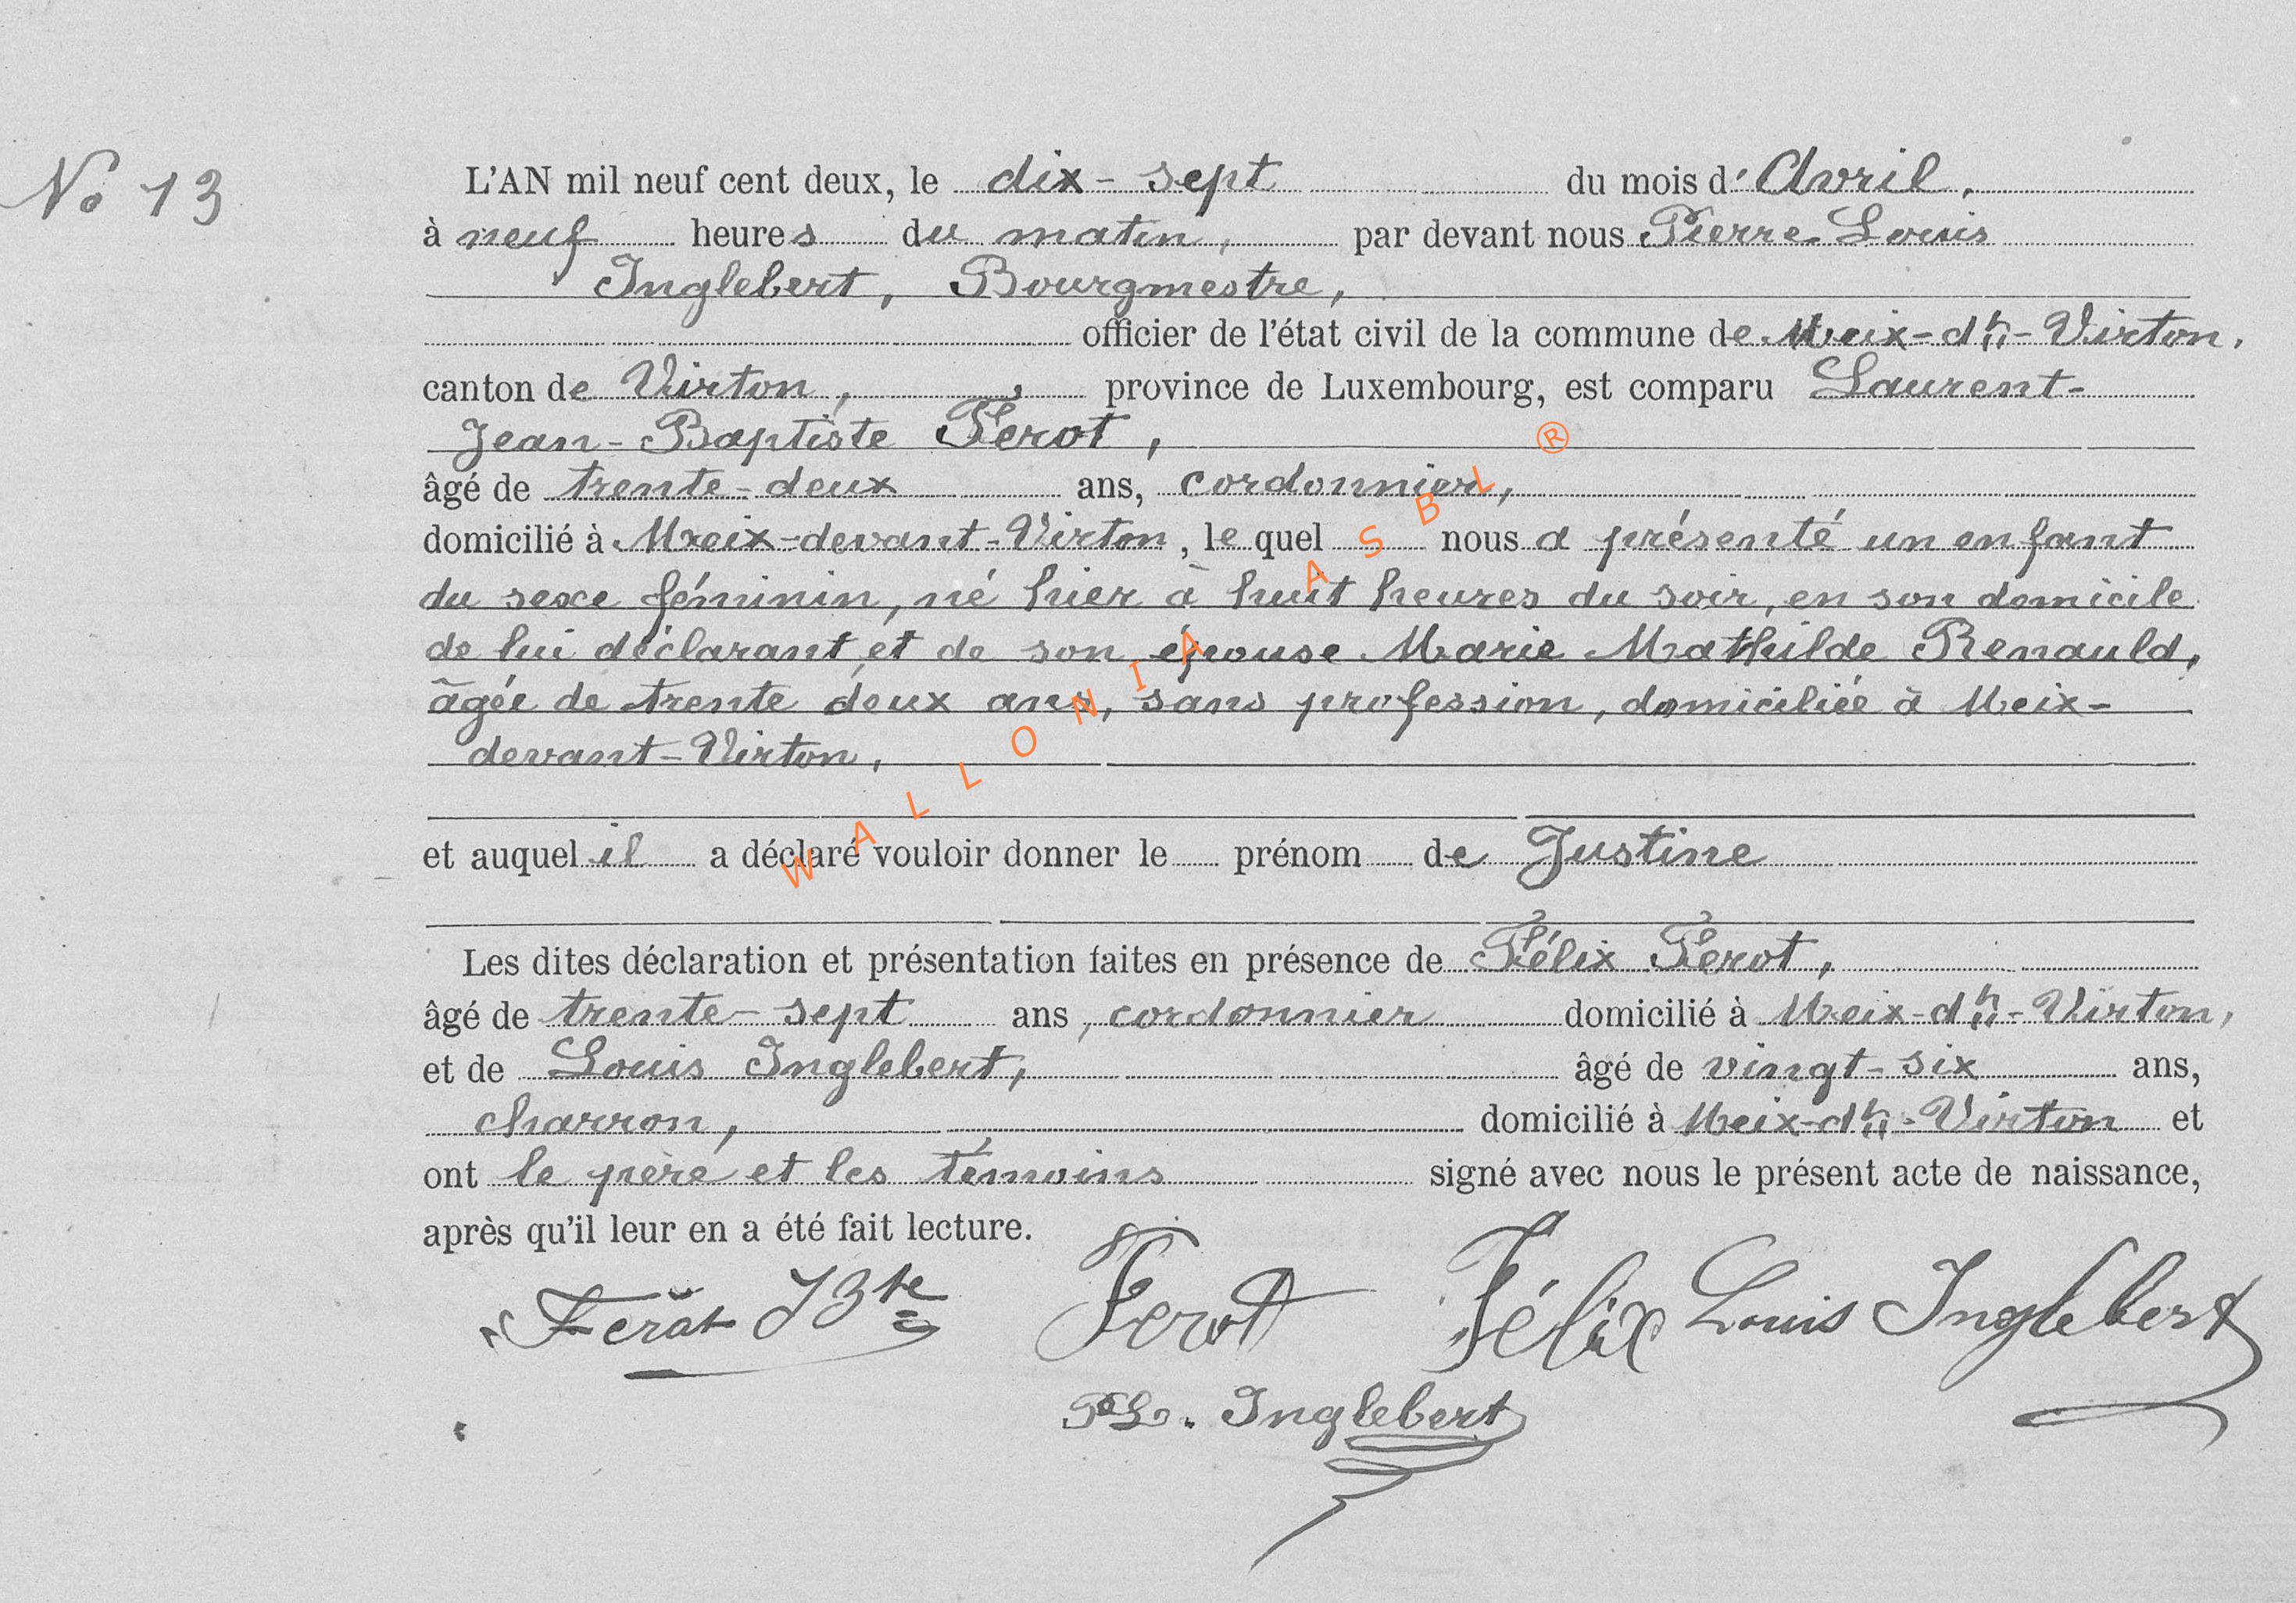 No 13
L'AN mil neuf cent deux, le dix-sept du mois d'Avril,
à neuf heures du matin, par devant nous Pierre Louis
Inglebert, Bourgmestre,
officier de l'état civil de la commune de Meix-dt-Virton,
canton de Virton, province de Luxembourg, est comparu Laurent-
Jean-Baptiste Ferot,
âgé de trente-deux ans, cordonnier,
domicilié à Meix-devant-Virton, le quel nous a présenté un enfant
du sexe féminin, né hier à huit heures du soir, en son domicile
de lui déclarant et de son épouse Marie Mathilde Renauld,
âgée de trente deux ans, sans profession, domiciliée à Meix-
devant-Virton,
et auquel il a déclaré vouloir donner le prénom de Justine
Les dites déclaration et présentation faites en présence de Félix Ferot,
âgé de trente-sept ans, cordonnier domicilié à Meix-dt-Virton,
et de Louis Inglebert, âgé de vingt-six ans,
charron, domicilié à Meix-dt-Virton et
ont le père et les témoins signé avec nous le présent acte de naissance,
après qu'il leur en a été fait lecture.
Ferot JBte Ferot Félix Louis Inglebert
PL. Inglebert
WALLONIA ASBL ®